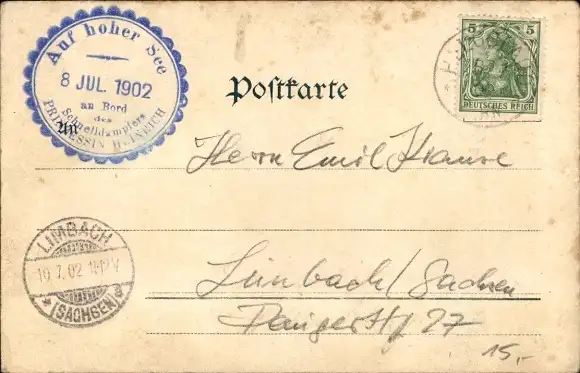 Auf hoher See
8 JUL. 1902
an Bord
des
Schnelldampfers
PRINZESSIN HEINRICH
5 5
DEUTSCHES REICH
Postkarte
An
Herrn Emil Krause
LIMBACH
10.7.02
*(SACHSEN)a
Limbach/Sachsen
27
15,-